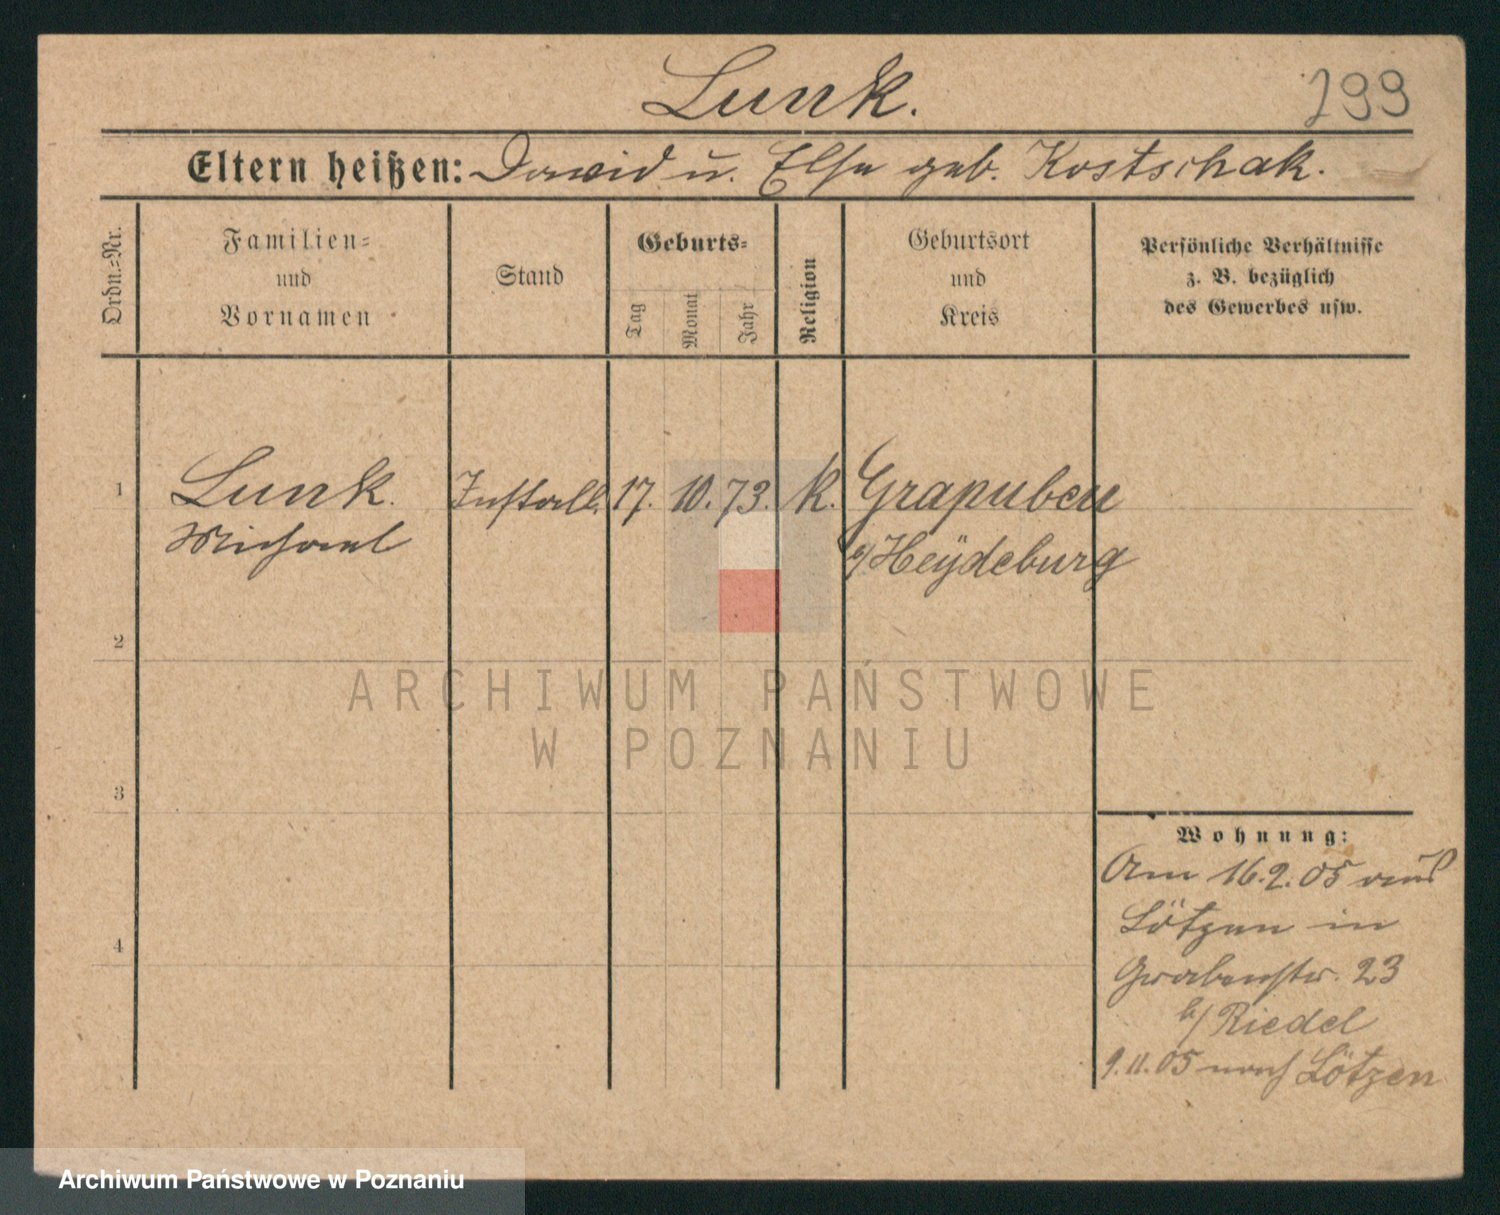 Lunk.
299
Eltern heißen: David u. Else geb. Kostschak.
Ordn.-Nr.
Familien-
und
Vornamen
Stand
Geburts-
Tag
Monat
Jahr
Religion
Geburtsort
und
Kreis
Persönliche Verhältnisse
z. B. bezüglich
des Gewerbes usw.
1
Lunk. Install. 17. 10. 73. k. Grapuben
Michael
Heÿdeburg
2
ARCHIWUM PAŃSTWOWE
W POZNANIU
3
Wohnung:
Am 16.2.05 aus
Lötzen in
4
Grabenstr. 23
b/ Riedel
9.11.05 nach Lötzen
Archiwum Państwowe w Poznaniu